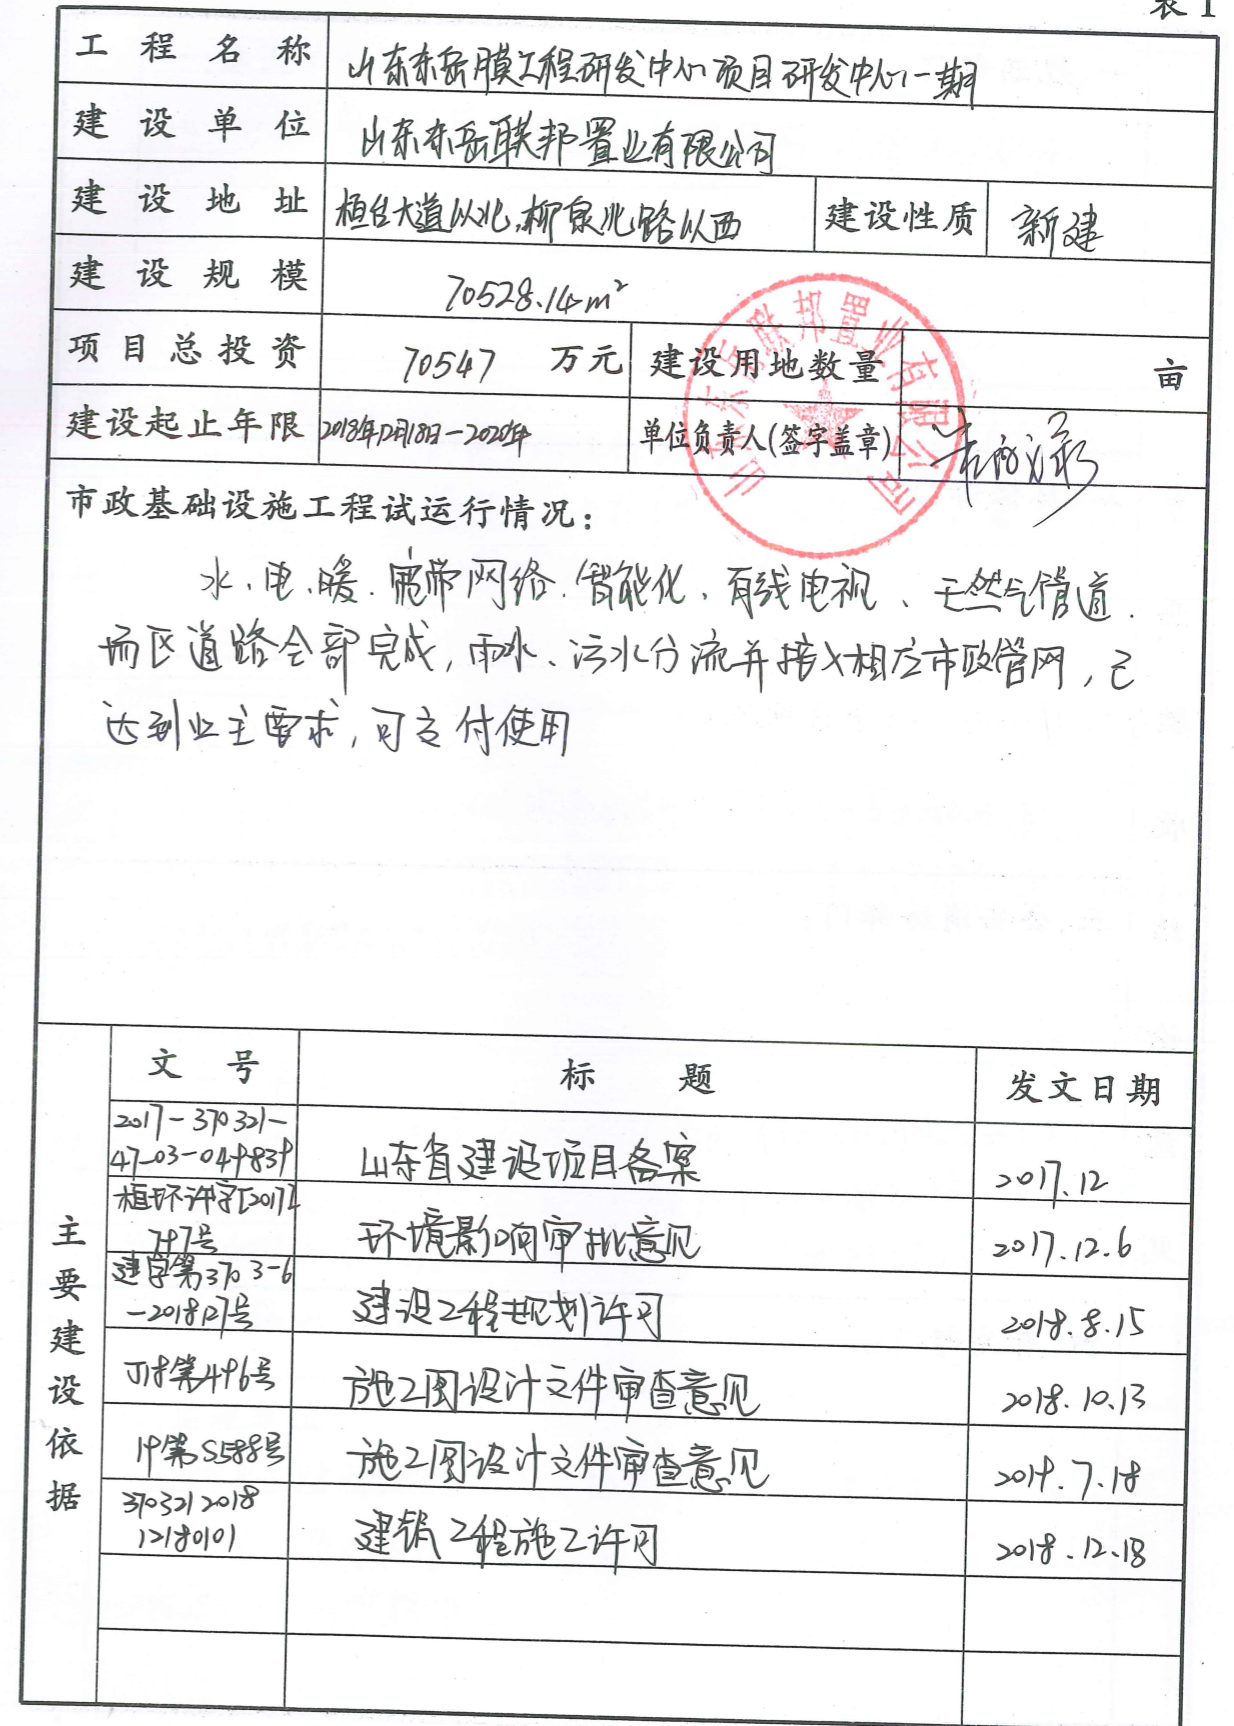 表1
工程名称 山东东岳膜工程研发中心项目研发中心一期
建设单位 山东东岳联邦置业有限公司
建设地址 桓台大道以北,柳泉北路以西 建设性质 新建
建设规模 70528.14m²
项目总投资 70547 万元 建设用地数量 亩
建设起止年限 2018年12月18日-2020年 单位负责人(签字盖章)
山东东岳联邦置业有限公司
市政基础设施工程试运行情况:
水、电、暖、宽带网络、智能化、有线电视、天然气管道、
场区道路全部完成,雨水、污水分流并接入相应市政管网,已
达到业主要求,可交付使用
主要建设依据
文号 标题 发文日期
2017-370321-
47-03-049839 山东省建设项目备案 2017.12
桓环许字[2017]
797号 环境影响审批意见 2017.12.6
建字第3703-6
-2018127号 建设工程规划许可 2018.8.15
J18第496号 施工图设计文件审查意见 2018.10.13
19第S588号 施工图设计文件审查意见 2019.7.18
3703212018
12180101 建筑工程施工许可 2018.12.18